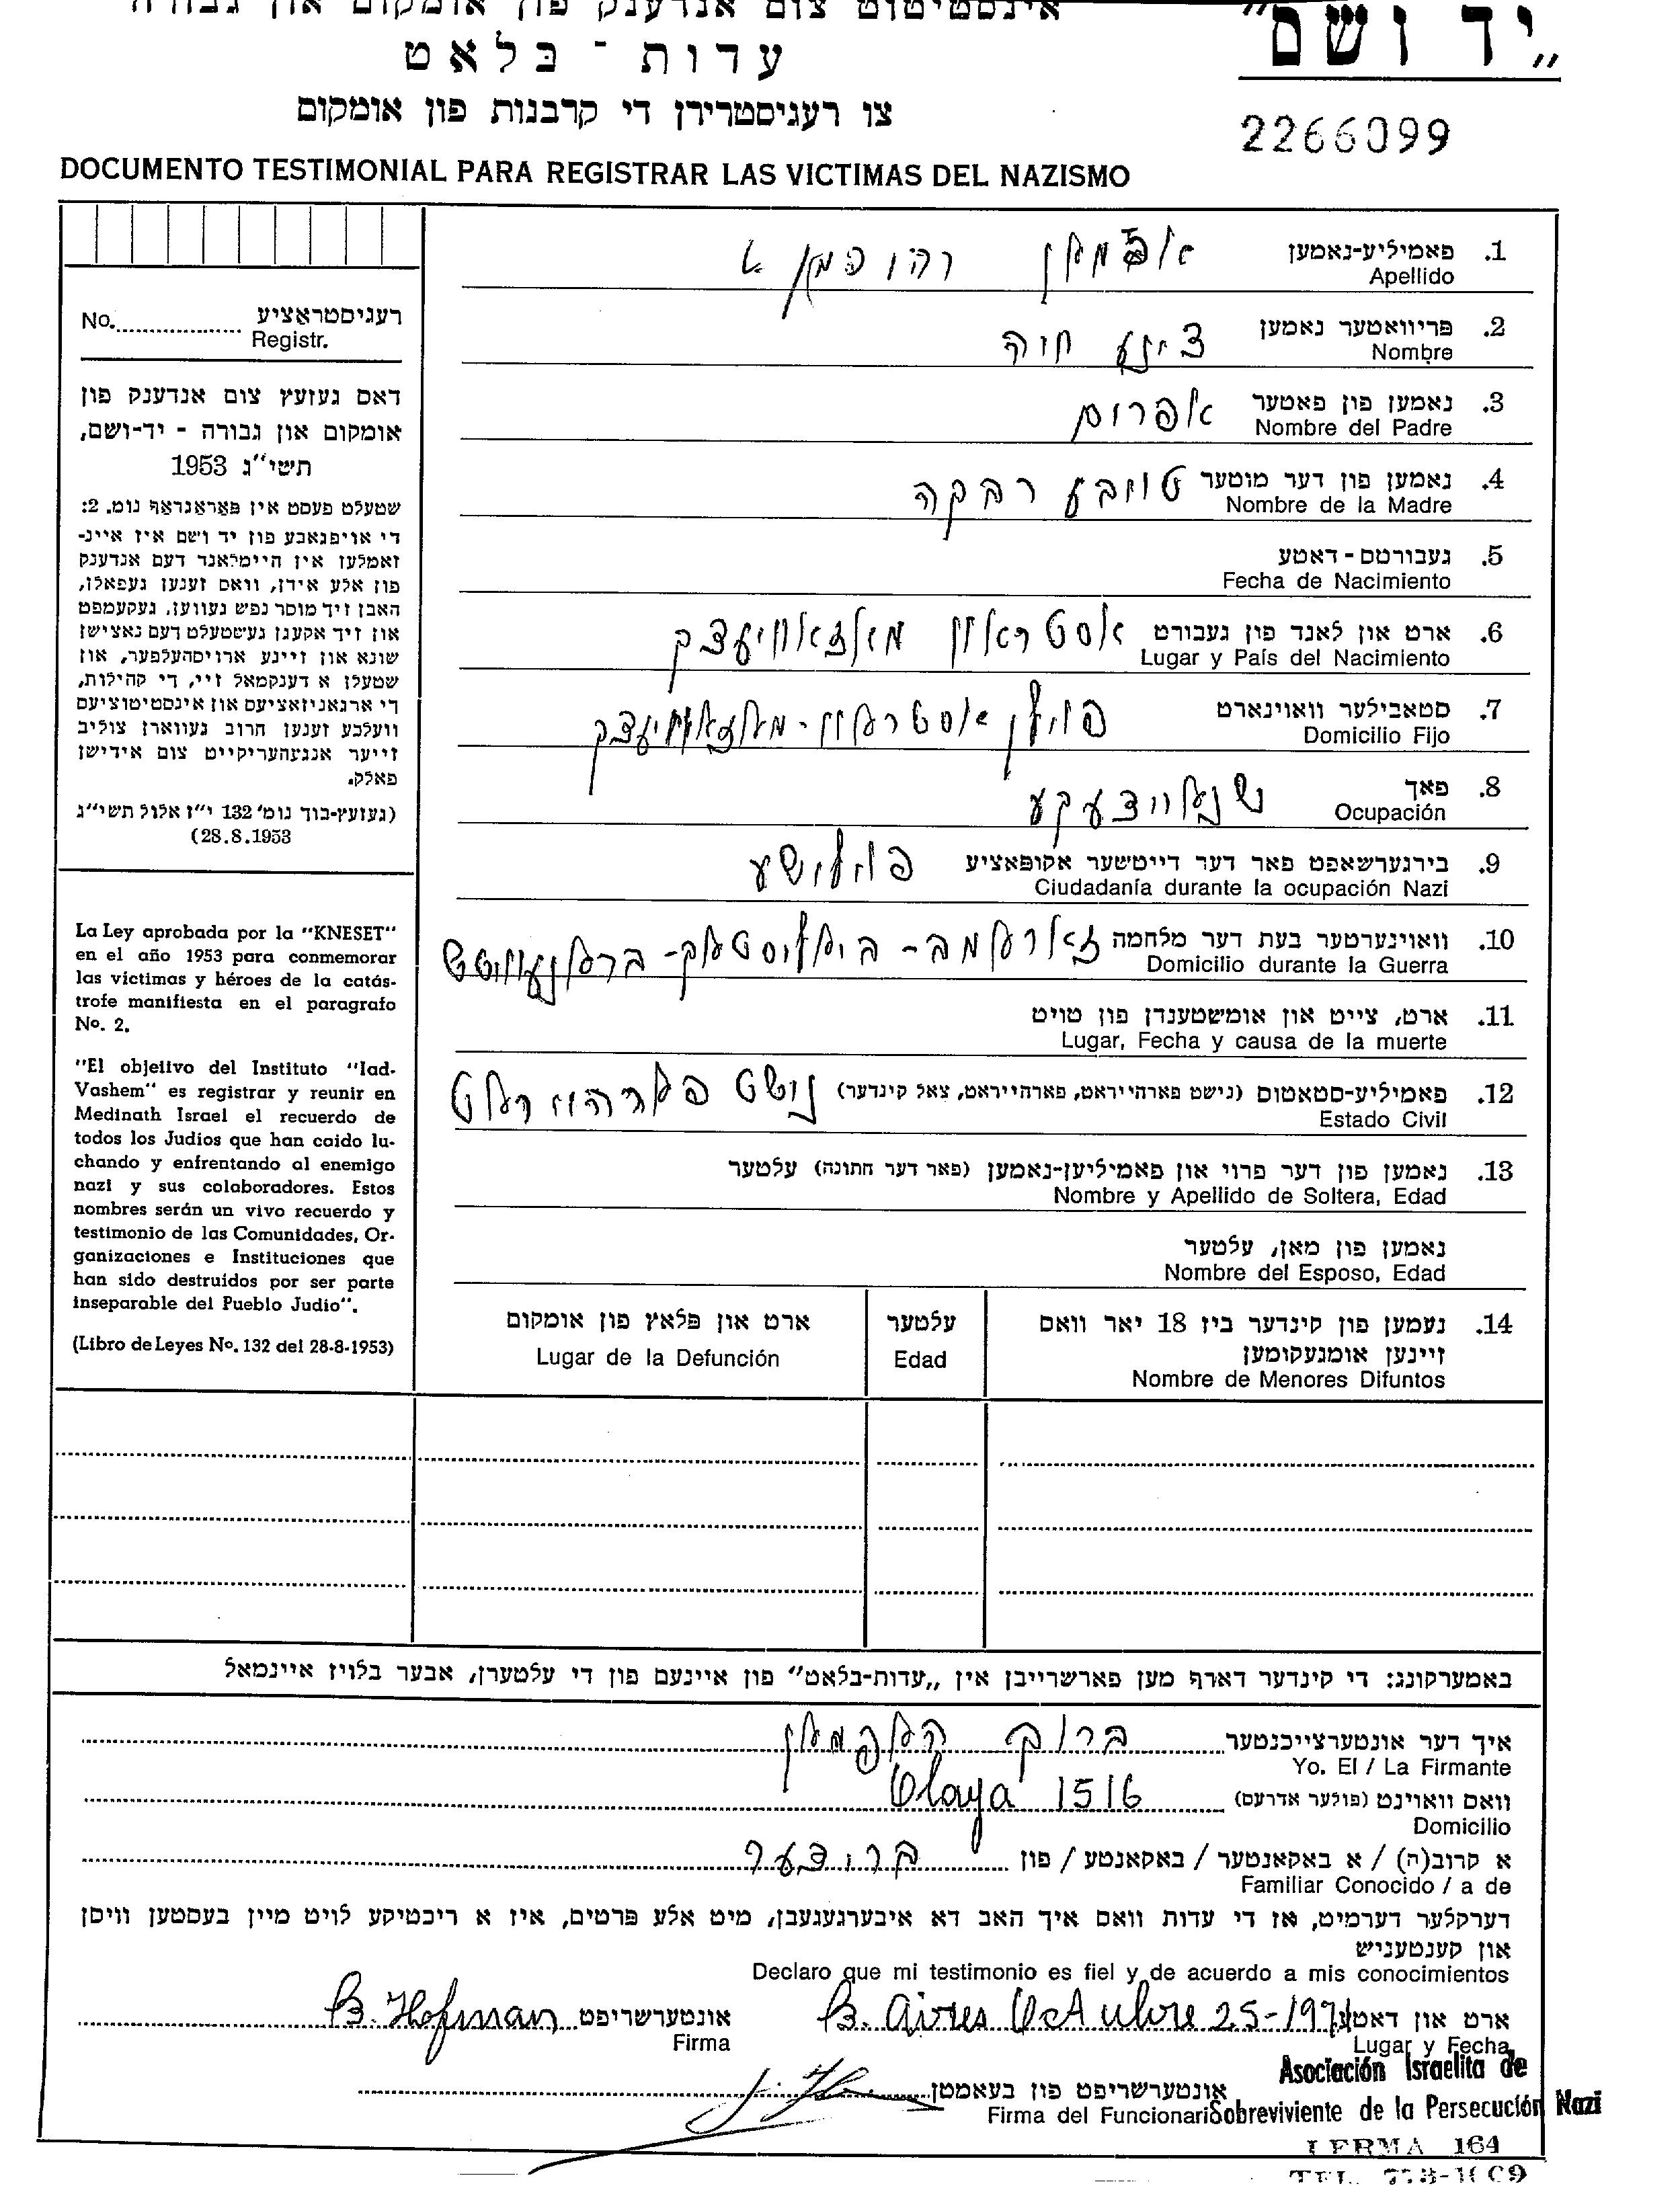 „יד ושם"
אינסטיטוט צום אנדענק פון אומקום און גבורה
עדות - בלאט
צו רעגיסטרירן די קרבנות פון אומקום
2266099
DOCUMENTO TESTIMONIAL PARA REGISTRAR LAS VICTIMAS DEL NAZISMO
1. פאמיליע-נאמען
Apellido
2. פריוואטער נאמען ציפע חוה
Nombre
3. נאמען פון פאטער אפרום
Nombre del Padre
4. נאמען פון דער מוטער טויבע רבקה
Nombre de la Madre
5. געבורטס - דאטע
Fecha de Nacimiento
6. ארט און לאנד פון געבורט אסטראוו מאזאוויעצק
Lugar y País del Nacimiento
7. סטאבילער וואוינארט פוילן אסטראוו - מאזאוויעצק
Domicilio Fijo
8. פאך שנאיידצעקע
Ocupación
9. בירגערשאפט פאר דער דייטשער אקופאציע פוילישע
Ciudadanía durante la ocupación Nazi
10. וואוינערטער בעת דער מלחמה זארעמב - ביאליסטאק -
Domicilio durante la Guerra
11. ארט, צייט און אומשטענדן פון טויט
Lugar, Fecha y causa de la muerte
12. פאמיליע-סטאטוס (נישט פארהייראט, פארהייראט, צאל קינדער) נישט פארהייראט
Estado Civil
13. נאמען פון דער פרוי און פאמיליען-נאמען (פאר דער חתונה) עלטער
Nombre y Apellido de Soltera, Edad
נאמען פון מאן, עלטער
Nombre del Esposo, Edad
14. נעמען פון קינדער ביז 18 יאר וואס
זיינען אומגעקומען
Nombre de Menores Difuntos
עלטער
Edad
ארט און פלאץ פון אומקום
Lugar de la Defunción
רעגיסטראציע
No. Registr.
דאס געזעץ צום אנדענק פון
אומקום און גבורה - יד-ושם,
תשי"ג 1953
שטעלט פעסט אין פאראגראף נומ. 2:
די אויפגאבע פון יד ושם איז איינ-
זאמלען אין היימלאנד דעם אנדענק
פון אלע אידן, וואס זענען געפאלן,
האבן זיך מוסר נפש געווען, געקעמפט
און זיך אקעגן געשטעלט דעם נאצישן
שונא און זיינע ארויסהעלפער, און
שטעלן א דענקמאל זיי, די קהילות,
די ארגאניזאציעס און אינסטיטוציעס
וועלכע זענען חרוב געווארן צוליב
זייער אנגעהעריקייט צום אידישן
פאלק.
(געזעץ-בוך נומ' 132 י"ז אלול תשי"ג
28.8.1953)
La Ley aprobada por la "KNESET"
en el año 1953 para conmemorar
las víctimas y héroes de la catás-
trofe manifiesta en el paragrafo
Nº. 2.
"El objetivo del Instituto "Iad-
Vashem" es registrar y reunir en
Medinath Israel el recuerdo de
todos los Judíos que han caído lu-
chando y enfrentando al enemigo
nazi y sus colaboradores. Estos
nombres serán un vivo recuerdo y
testimonio de las Comunidades, Or-
ganizaciones e Instituciones que
han sido destruídos por ser parte
inseparable del Pueblo Judío".
(Libro de Leyes Nº. 132 del 28-8-1953)
באמערקונג: די קינדער דארף מען פארשרייבן אין „עדות-בלאט" פון איינעם פון די עלטערן, אבער בלויז איינמאל
איך דער אונטערצייכנטער ברוך האפמאן
Yo. El / La Firmante
וואס וואוינט (פולער אדרעס) Olaya 1516
Domicilio
א קרוב(ה) / א באקאנטער / באקאנטע / פון ברודער
Familiar Conocido / a de
דערקלער דערמיט, אז די עדות וואס איך האב דא איבערגעגעבן, מיט אלע פרטים, איז א ריכטיקע לויט מיין בעסטען וויסן
און קענטעניש
Declaro que mi testimonio es fiel y de acuerdo a mis conocimientos
ארט און דאטע B. Aires Octubre 25-1971 אונטערשריפט B. Hofman
Lugar y Fecha Firma
אונטערשריפט פון בעאמטן
Firma del Funcionari
Asociación Israelita de
Sobreviviente de la Persecución Nazi
LERMA 164